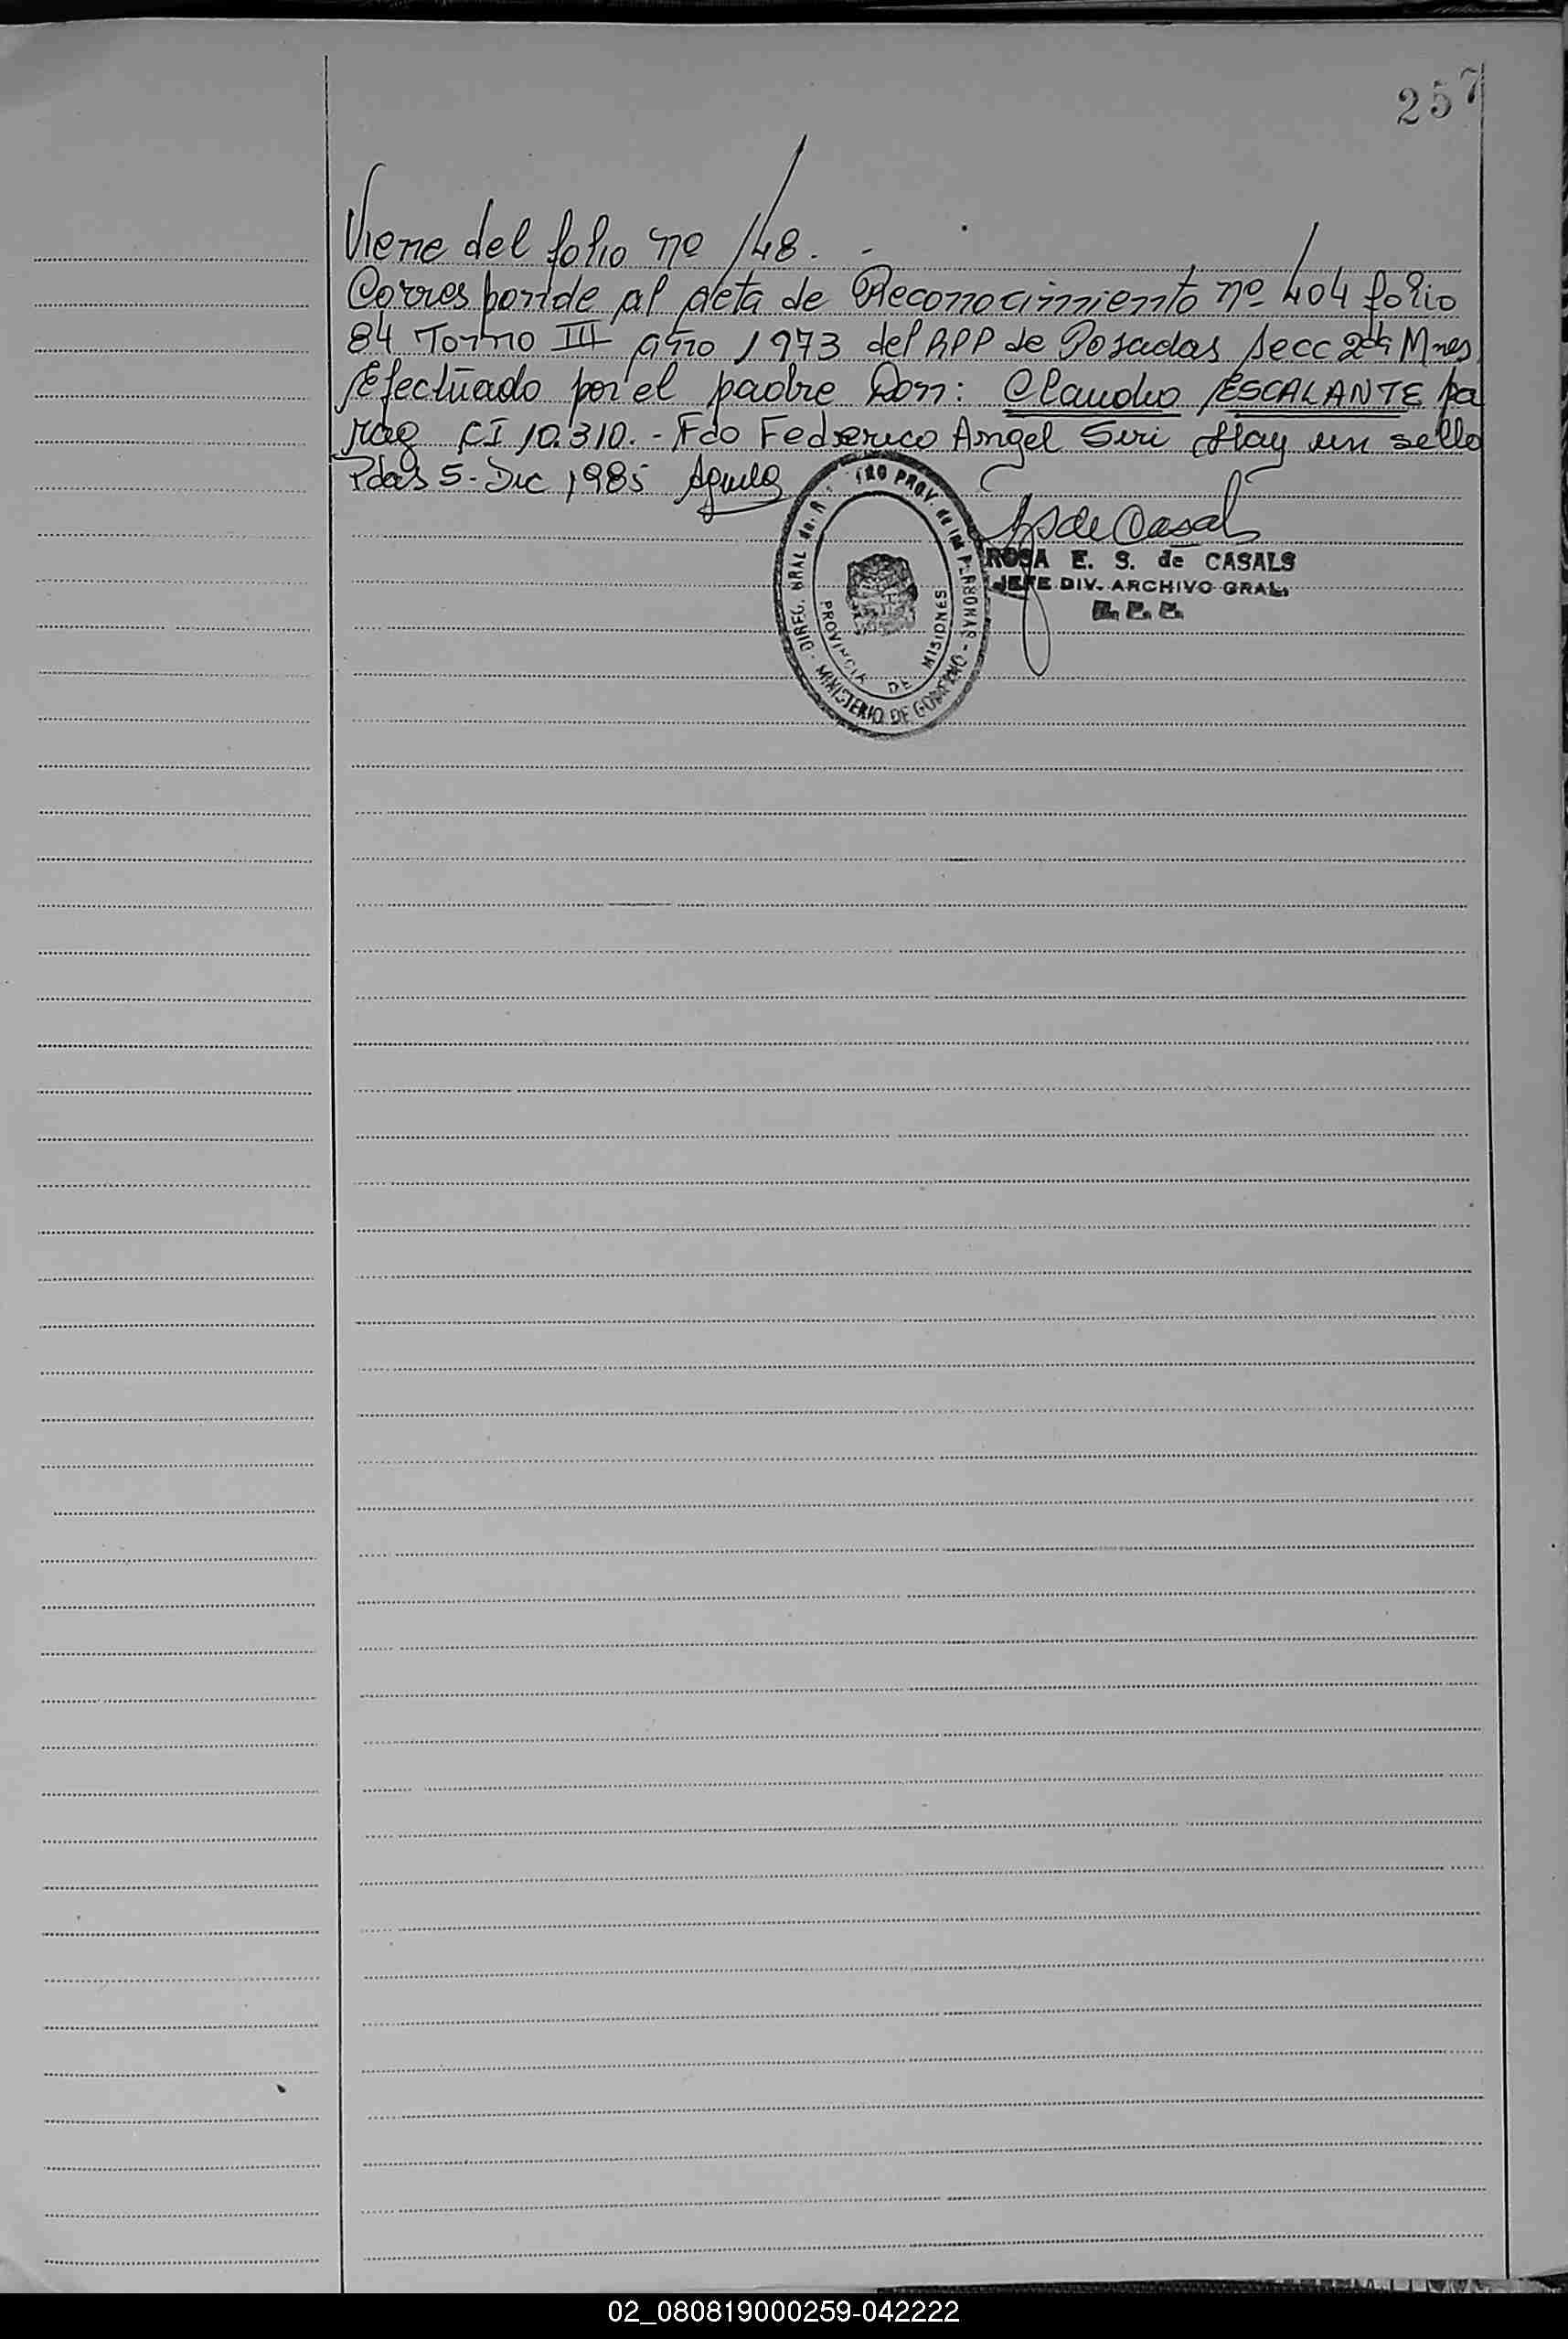 257
Viene del folio nº 148. -
Corresponde al acta de Reconocimiento nº 404 folio
84 Tomo III año 1973 del RPP de Posadas Secc 2da Mnes
Efectuado por el padre Don: Claudio ESCALANTE pa
rag CI 10.310. - Fdo Federico Angel Siri Hay un sello
Pdas 5 - Dic 1985
S de Casals
ROSA E. S. de CASALS
JEFE DIV. ARCHIVO GRAL.
R. P. P.
DIREC. GRAL de. R TRO PROV. de las PERSONAS - MINISTERIO DE GOBIERNO
PROVINCIA DE MISIONES
02_080819000259-042222